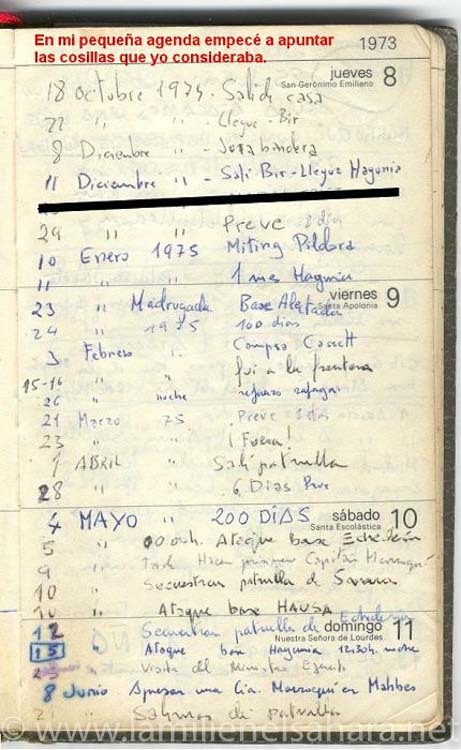 En mi pequeña agenda empecé a apuntar
las cosillas que yo consideraba.
1973
jueves 8
San Gerónimo Emiliano
18 octubre 1974. Sali de casa
22 " " . Llegue - Bir
8 Diciembre " - Jura bandera
11 Diciembre " - Sali Bir - Llegue Hagunia
29 " " Preve
10 Enero 1975 Miting Pildora
11 " " 1 mes Hagunia
viernes 9
Santa Apolonia
23 " Madrugada Base Alertada
24 " 1975 100 dias
3 Febrero " Compra Cassett
15-16 fui a la frontera
26 " noche refuerzo zafagar
21 Marzo 75 Preve
23 " " ¡Fuera!
1 ABRIL " Sali patrulla
28 " " 6 Dias Preve
sábado 10
Santa Escolástica
4 MAYO " 200 DÍAS
5 " Ataque base Echederia
9 " Capitán Marroquí
10 " Secuestran patrulla de
10 " Ataque base HAUSA
domingo 11
Nuestra Señora de Lourdes
12 " Secuestran patrulla de Echederia
15 " Ataque base Hagunia 12:30h. noche
25 " Visita del Ministro Ejercito
8 Junio Apresar una Cia. Marroquí en Mahbes
2 " " Salimos de patrulla
© www.lamilienelsahara.net